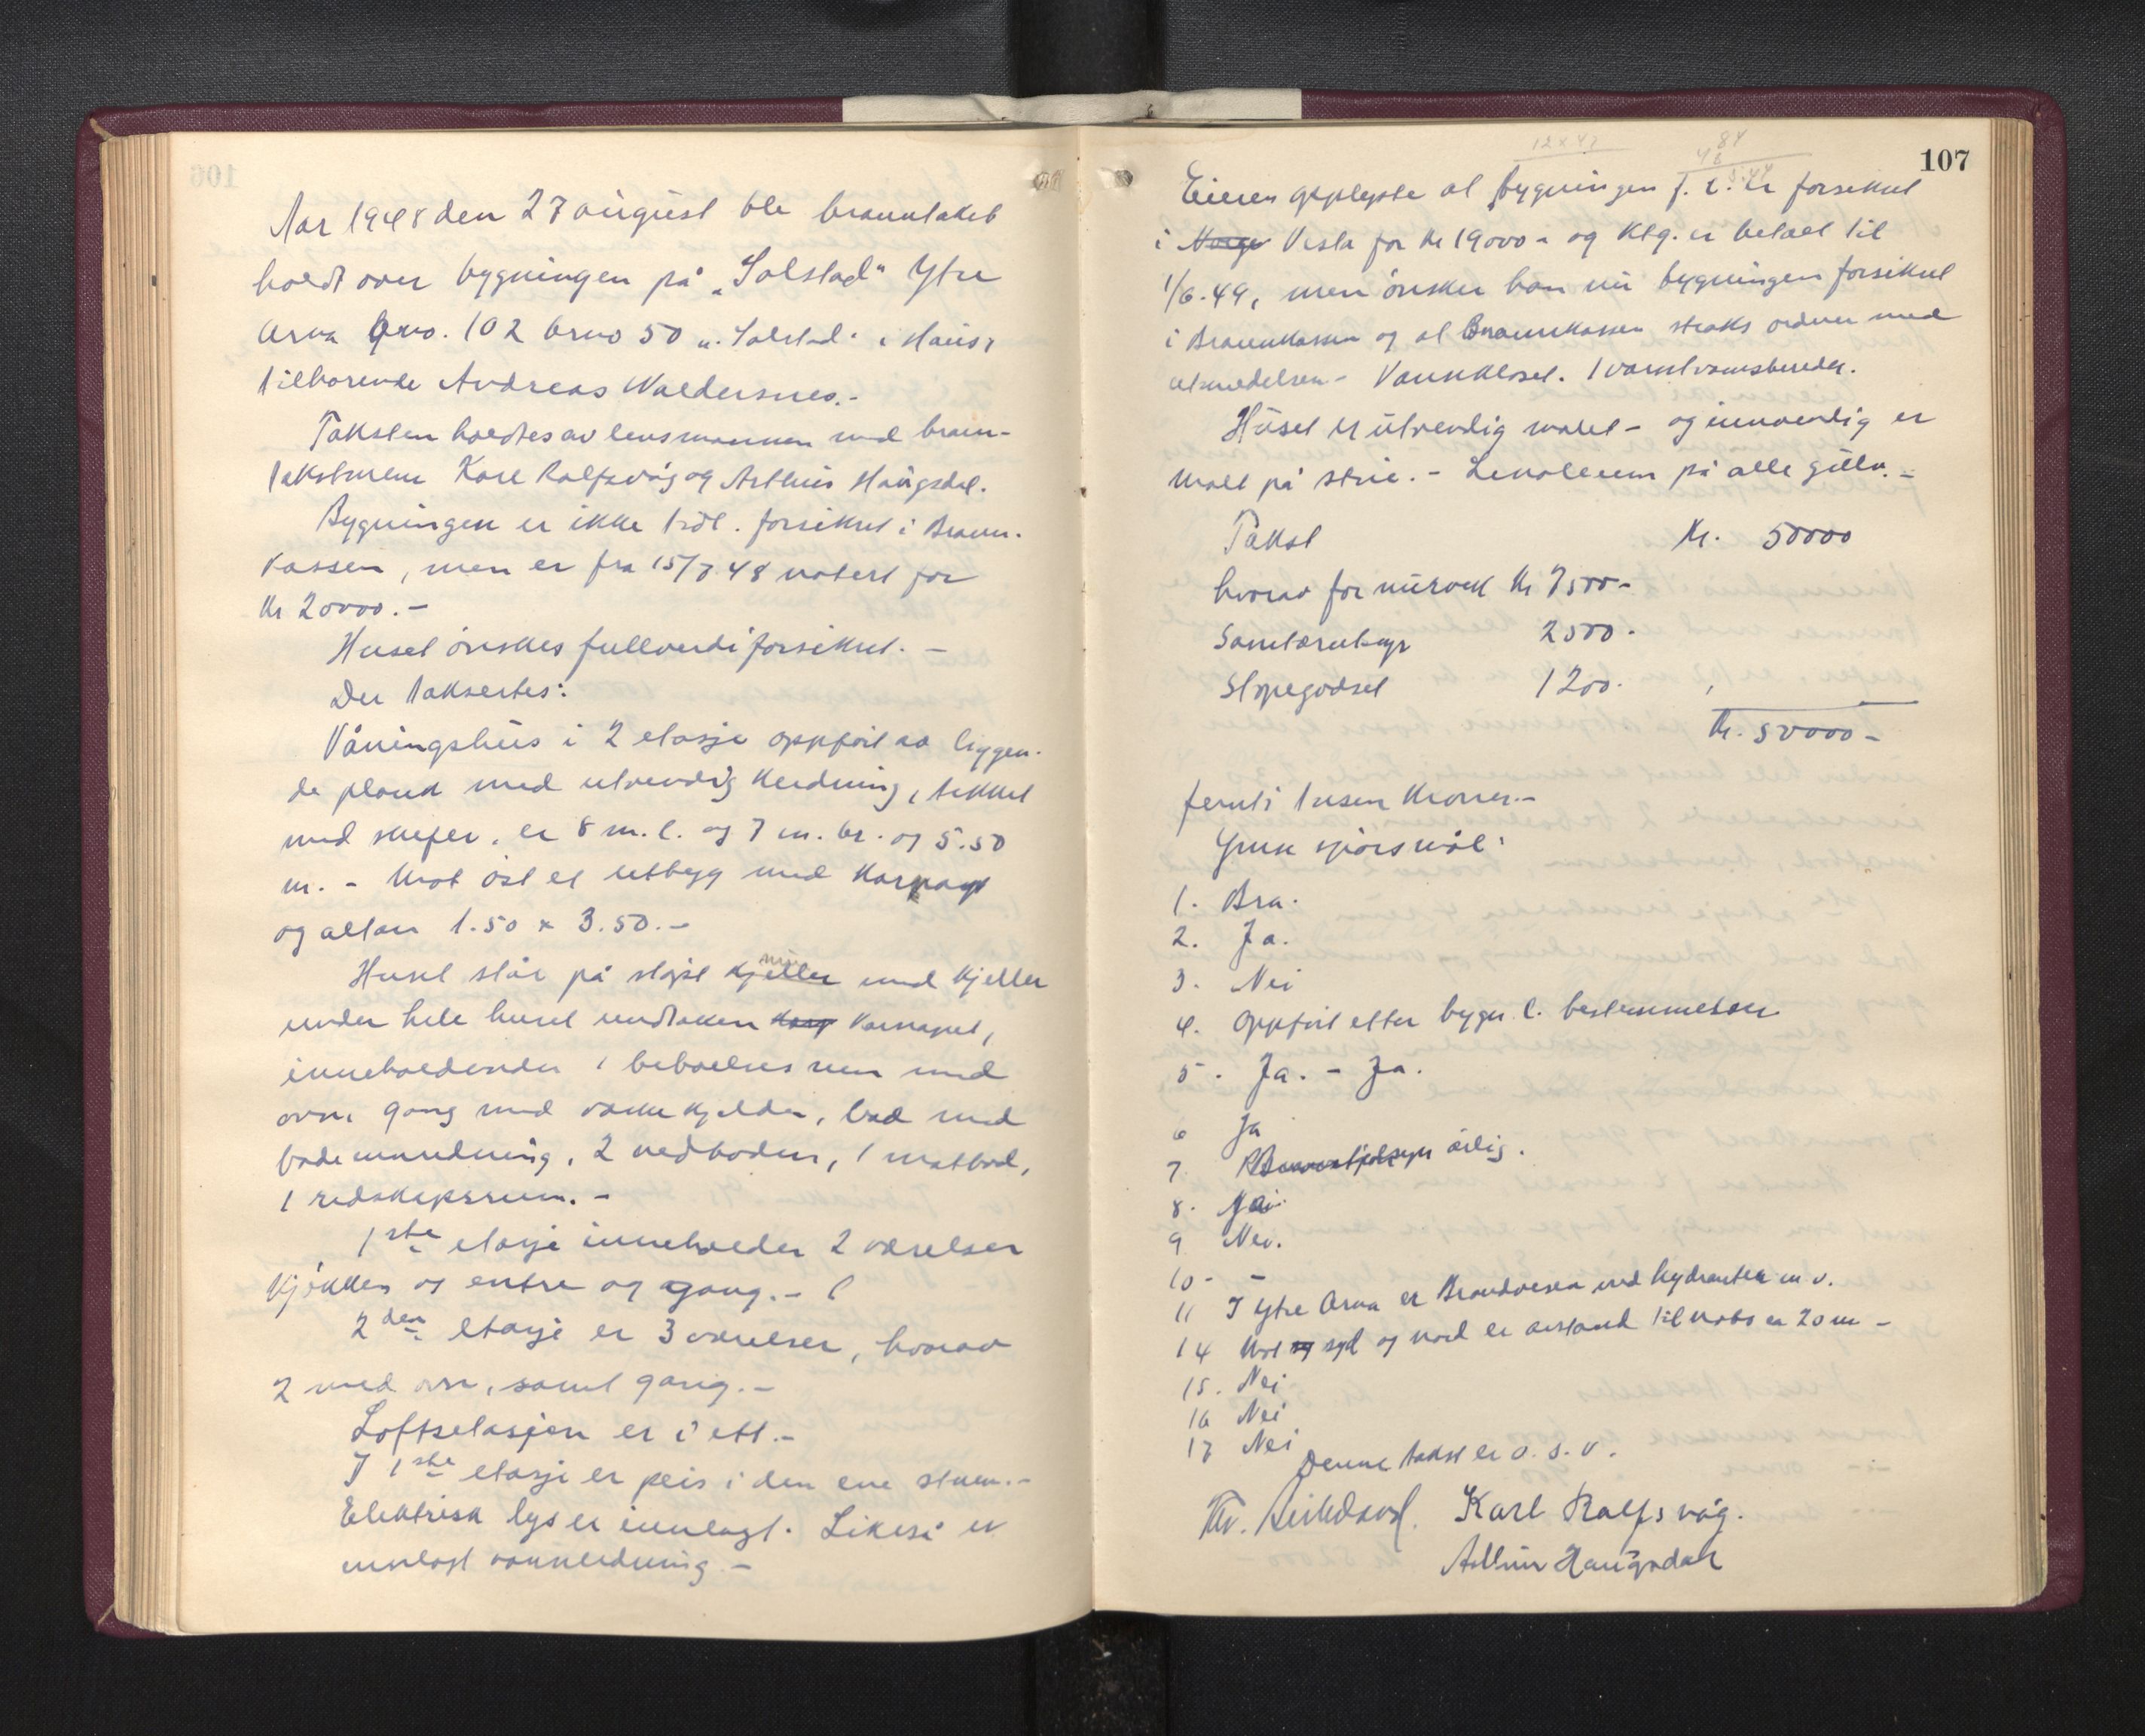 Aar 1948 den 27 august ble branntakst
holdt over bygningen på "Solstad" Ytre
Arna Gno. 102 Brno 50 "Solstad" i Haus,
tilhørende Andreas Waldersnes.-
Taksten holdtes av lensmannen med brann-
takstmenn Karl Ralfsvåg og Arthur Haugsdal.
Bygningen er ikke tidl. forsikret i Brann-
kassen, men er fra 15/7 48 notert for
Kr 20000.-
Huset ønskes fullverdiforsikret. -
Der takseertes:
Våningshus i 2 etasje oppført av liggen-
de plank med utvendig kledning, tekket
med skifer, er 8 m. l. og 7 m. br. og 5.50
m. - Mot øst et utbygg med karnapp
og altan 1.50 x 3.50.-
Huset står på støpt kjeller mur med kjeller
under hele huset undtaken Karnapet,
inneholdende 1 beboelses rum med
ovn, gang med vaskekjelder, bad med
badeinnredning, 2 vedboder, 1 matbod,
1 redskapsrum. -
1ste etasje inneholder 2 værelser
kjøkken og entre og gang. -
2den etasje er 3 værelser, hvorav
2 med ovn, samt gang. -
Loftsetasjen er i ett.-
I 1ste etasje er peis i den ene stuen.-
Elektrisk lys er innlagt. Likeså er
innlagt vannledning -
107
12x47
84
46
Eieren opplyste at bygningen f. t. er forsikret
i Norge Vesta for kr 19000- og Ktg. er betalt til
1/6.49, men ønsker han nu bygningen forsikret
i Brannkassen og at Brannkassen straks ordner med
utmeldelsen - Vannkloset. 1 varmtvannsbereder.
Huset er utvendig malet - og innvendig er
malt på strie. - Linoleum på alle gulv. -
Takst Kr. 50000
hvorav for murverk Kr 7500-
Sanitæranlegg 2500-
Støpegodset 1200.
Kr. 50000-
femti tusen kroner.-
Grunn spørsmål:
1. Bra.
2. Ja.
3. Nei
4. Oppført etter bygn. l. bestemmelser
5. Ja. - Ja.
6 Ja
7 årlig.
8. Nei
9 Nei.
10- -
11 I Ytre Arna er Brandvesen med hydranter m. v.
14 Mot og syd og nord er avstand til nabo er 20 m -
15. Nei
16 Nei
17 Nei
Denne takst er o. s. v.
Karl Ralfsvåg.
Arthur Haugsdal